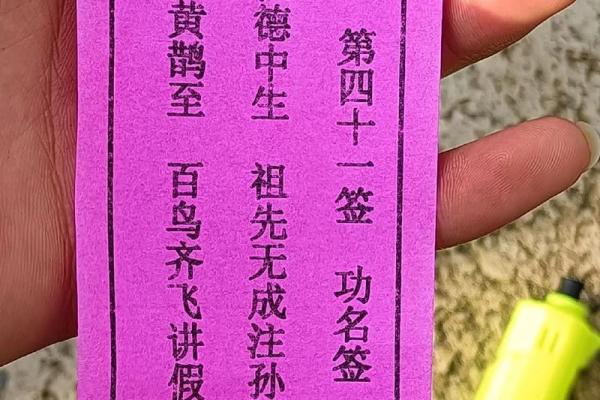 第四十一签 功名签
德中生 祖先无成注孙
黄鹊至 百鸟齐飞讲假